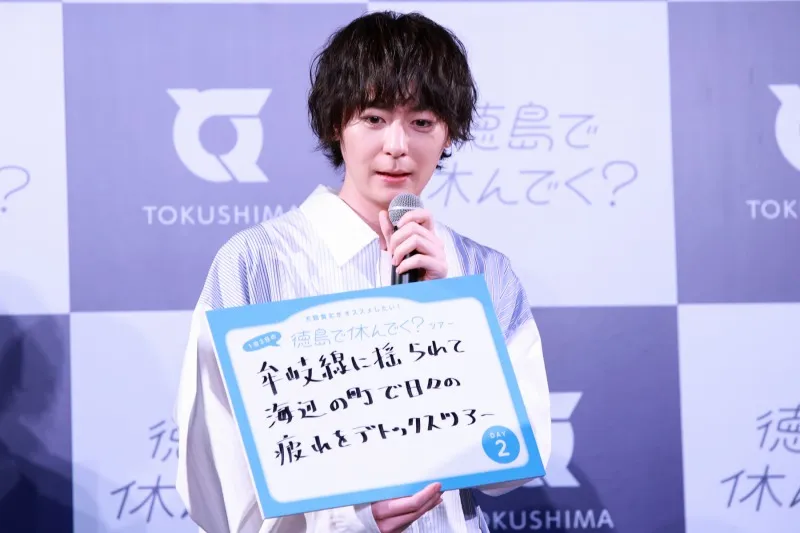 TOKUSHIMA
徳島で
休んでく?
TOKU
徳島で休んでく?ツアー
牟岐線に揺られて
海辺の町で日々の
疲れをデトックスツアー
DAY
2
徳
休んでく?
徳
休んで
TOKUSHIMA